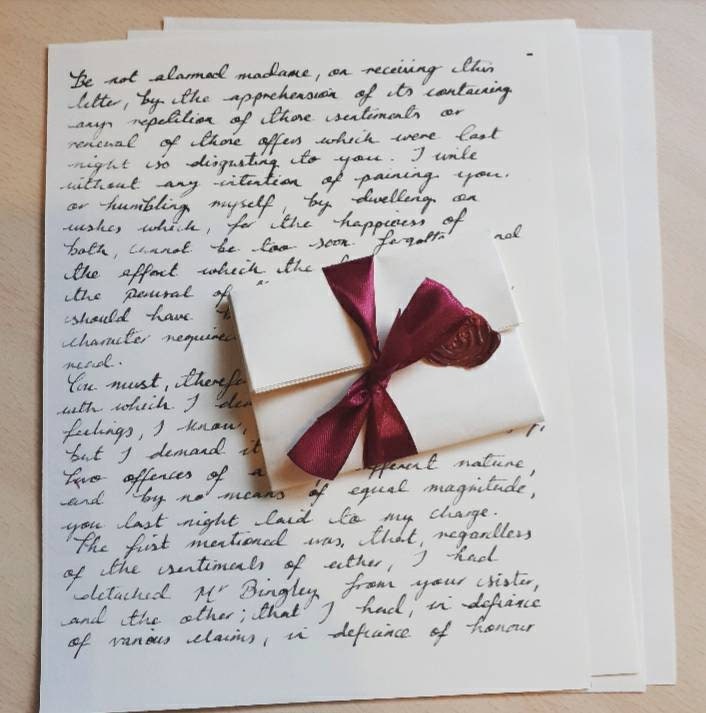 Be not alarmed madame, on receiving this
letter, by the apprehension of its containing
any repetition of those sentiments or
renewal of those offers which were last
night so disgusting to you. I write
without any intention of paining you,
or humbling myself, by dwelling on
wishes which, for the happiess of
both, cannot be too soon forgotte
the effort which the
the perusal of
should have
character require
read.
You must, therefo
with which I de
feelings, I know,
but I demand it
Two offences of a fferent nature,
and by no means of equal magnitude,
you last night laid to my charge.
The first mentioned was, that, regardless
of the sentiments of either, I had
detached Mr Bingley from your sister,
and the other; that I had, in defiance
of various claims, in defiance of honour